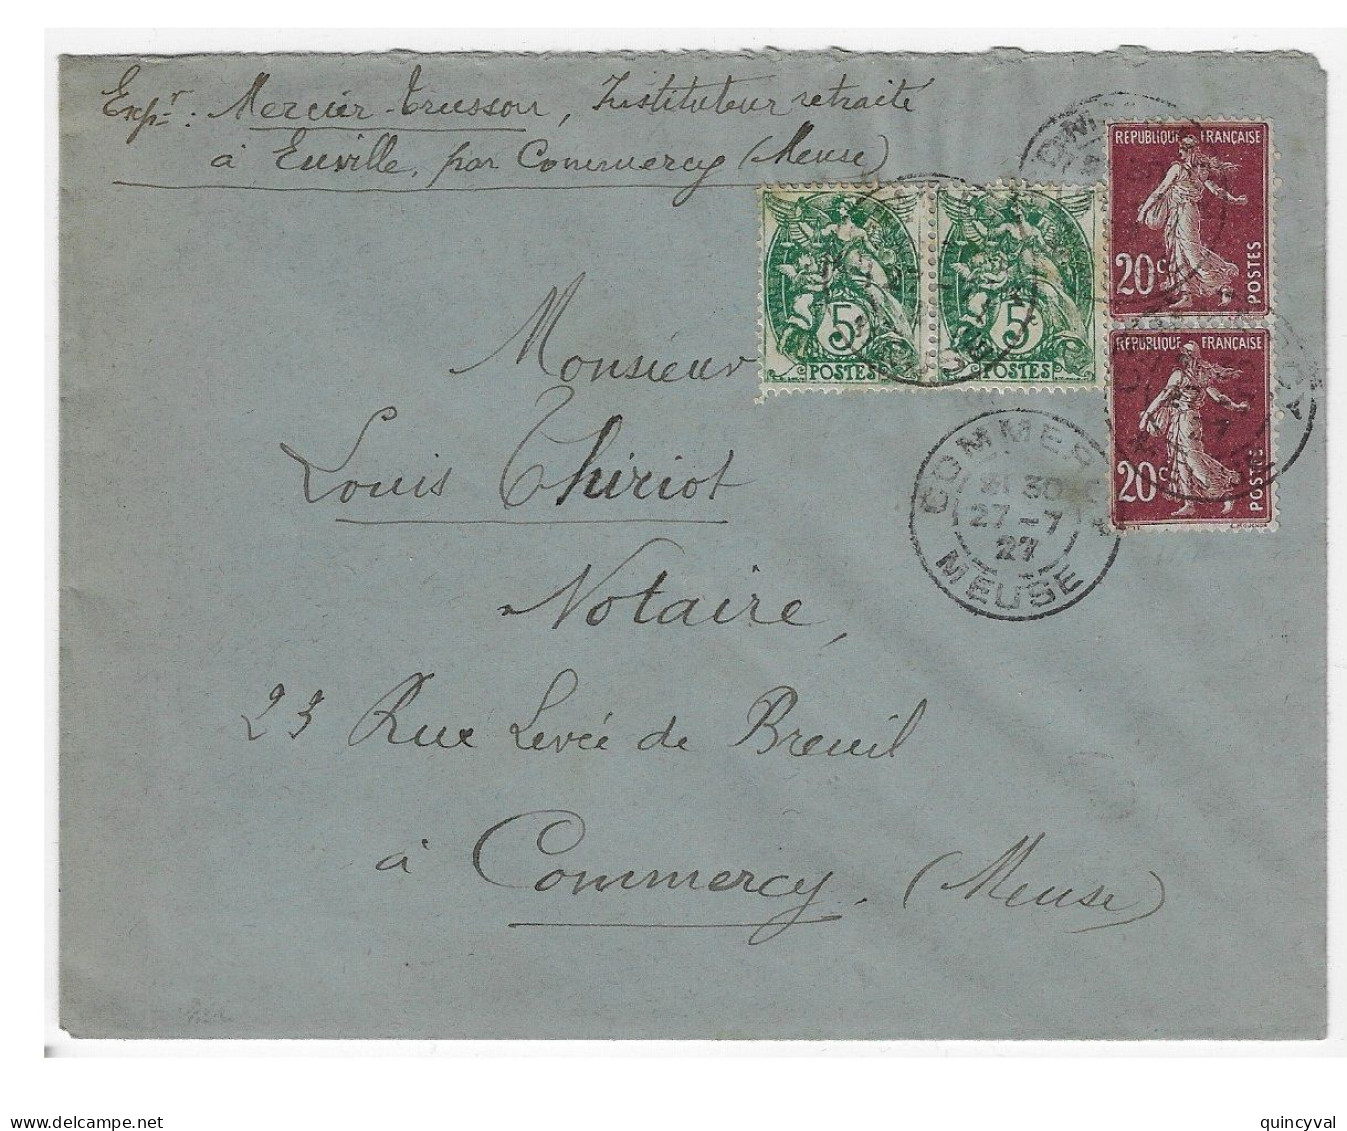 Exp.r : Mercier-Trusson, Instituteur retraité
à Euville, par Commercy (Meuse)
REPUBLIQUE FRANÇAISE
20c
POSTES
5
POSTES
5
POSTES
REPUBLIQUE FRANÇAISE
20c
POSTES
COMMERCY
21 30
27-7
27
MEUSE
Monsieur
Louis Thiriot
Notaire,
23 Rue Levée de Breuil
à Commercy. (Meuse)
delcampe.net
quincyval